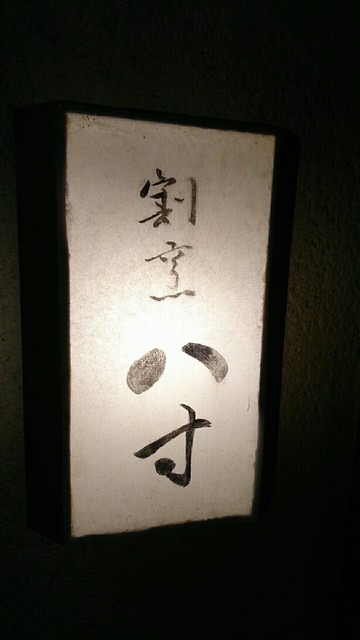 割烹
八寸